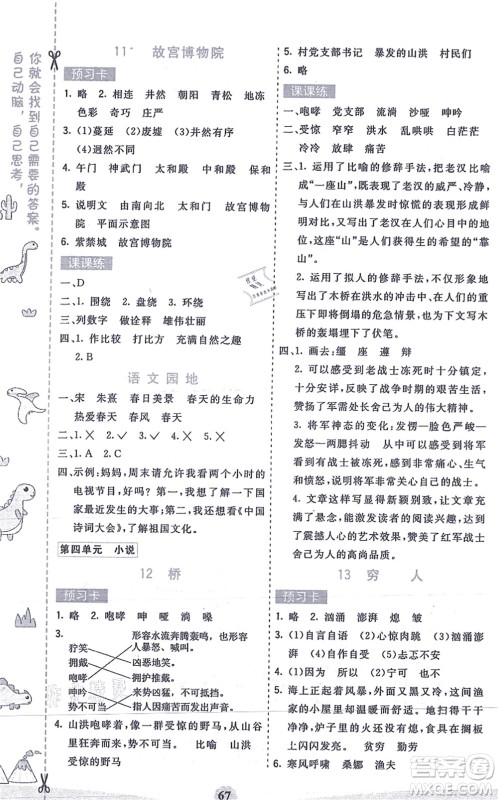 你就会找到自己需要的答案。
自己动脑，自己思考，
11* 故宫博物院
预习卡
1. 略 2. 相连 井然 朝阳 青松 地冻
色彩 奇巧 庄严
3. (1)蔓延 (2)废墟 (3)井然有序
(4)迥然不同
4. 午门 神武门 太和殿 中和殿 保和殿
5. 说明文 由南向北 太和门 故宫博物
院 平面示意图
6. 紫禁城 故宫博物院
课课练
一、D
二、1. 围绕 2. 盘绕 3. 环绕
三、列数字 做诠释 雄伟壮丽
四、1. 作比较 打比方 充满自然之趣
2. B
语文园地
一、宋 朱熹 春日美景 春天的生命力
热爱春天 春风 春天
二、1. ✕ 2. ✕ 3. ✓
三、1. ✓ 2. ✕ 3. ✓
四、示例：妈妈，周末请允许我看两个小时的
电视节目，我想借此机会了解一下国
家最近发生的大事，还想看看《中国
诗词大会》，了解祖国文化。
第四单元 小说
12 桥
预习卡
1. 略 2. 咆哮 呻 哑 淌 嗓
3.
狞笑
拥戴
咆哮
呻吟
势不可当
形容水流奔腾轰鸣，也形容
人暴怒、喊叫。
凶恶地笑。
拥护推戴。
来势迅猛，不可抵挡。
指人因痛苦而发出声音。
4. 山洪咆哮着，像一群受惊的野马，从山谷
里狂奔而来，势不可当。 比喻 山洪
受惊的野马 势不可当
5. 村党支部书记 暴发的山洪 村民们
6. 略
课课练
一、咆哮 党支部 流淌 沙哑 呻吟
二、受惊 窄窄 洪水 乱哄哄 白茫茫
冷冷 放肆 痛苦
三、1. 运用了比喻的修辞手法，把老汉比喻
成“一座山”，写出了老汉的威严、冷静，
与人们在山洪暴发时的惊慌形成鲜
明对比，又突出了老汉在人们心目中
的地位，他就是获得生的希望的“靠
山”。
2. 运用了拟人的修辞手法，不仅形象地
写出了木桥在洪水的冲击中、在人们
的重压下即将倒塌的危急情景，也为
下文写木桥的轰塌埋下了伏笔。
四、1. 画去：缰 座 遵 辩
2. 可以感受到老战士冻死时十分镇
定、十分安详，反映了战争时期的艰
苦生活，表现了老战士的革命乐观主
义精神。
3. 将军神态的变化：发怒→脸色严峻→
发红→两腮抖动 可以感受到将军
得知老战士被冻死，感到非常痛心、
感动，进而感到非常崇敬。
4. 文章采用这样的写法，让文章充满
了悬念，激发了读者的阅读兴趣，达到
了震撼人心的艺术效果，赞扬了老战
士的高尚品质。
13 穷人
预习卡
1. 略 2. 汹涌 澎湃 熄 皱
3. (1)自言自语 (2)心惊肉跳 汹涌
澎湃 自作自受 (3)忐忑不安
4. (1)因为 所以 (2)宁可 也
5. 海上正起着风暴，外面又黑又冷，这间渔
家的小屋里却温暖而舒适。地扫得干干
净净，炉子里的火还没有熄，食具在搁板
上闪闪发亮。 反衬 环境
6. 寒风呼啸 桑娜 渔夫
67